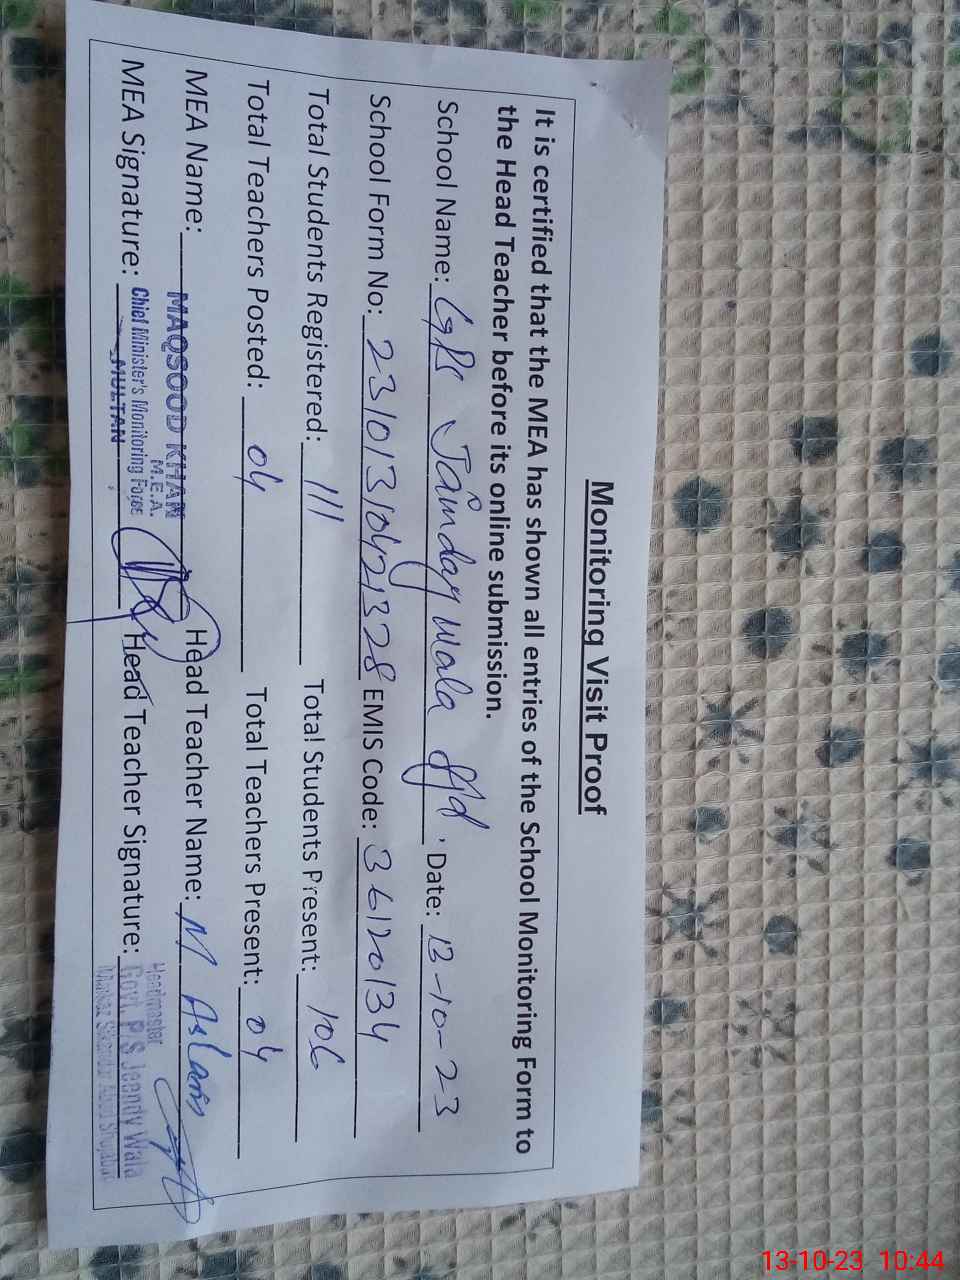 Monitoring Visit Proof
It is certified that the MEA has shown all entries of the School Monitoring Form to
the Head Teacher before its online submission.
School Name: GPS Wala Date: 13-10-23
School Form No: EMIS Code: 36120134
Total Students Registered: 111 Total Students Present: 106
Total Teachers Posted: 04 Total Teachers Present: 04
MEA Name: MAQSOOD KHAN Head Teacher Name: M Aslam
M.E.A.
MEA Signature: Chief Minister's Monitoring Force Head Teacher Signature:
MULTAN
Headmaster
Govt. P/S Jeendy Wala
13-10-23 10:44